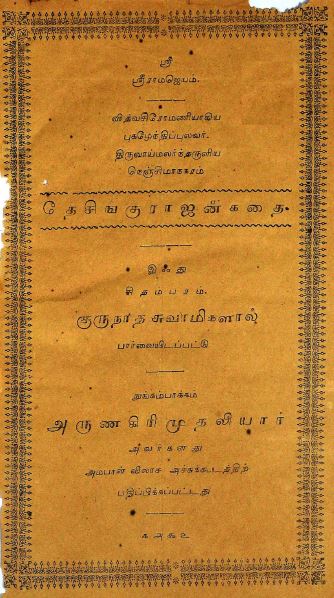 ஸ்ரீ
ஸ்ரீராமஜெயம்.
வித்வசிரோமணியாகிய
புகழேந்திப்புலவர்
திருவாய்மலர்ந்தருளிய
செஞ்சிமாநகரம்
தேசிங்குராஜன்கதை.
இஃது
சிதம்பரம்,
குருநாதசுவாமிகளால்
பார்வையிடப்பட்டு
நுங்கம்பாக்கம்
அருணகிரிமுதலியார்
அவர்களது
அமபாள் விலாச அச்சுக்கூடத்திற்
பதிப்பிக்கப்பட்டது